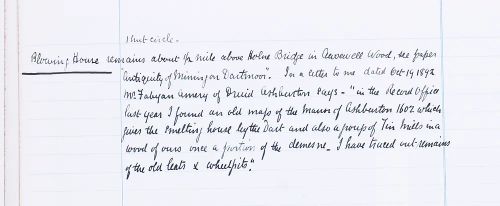 1 hut circle.
Blowing House remains about ½ mile above Holne Bridge in Awswell Wood, see paper
"Antiquity of Mining on Dartmoor". In a letter to me dated Oct 19 1892
Mr Fabyan Amery of Druid Ashburton says - "in the Record Office
last year I found an old map of the Manor of Ashburton 1602 which
gives the smelting house by the Dart and also a group of Tin Mills in a
wood of ours once a portion of the demesne. I have traced out remains
of the old leats & wheelpits".